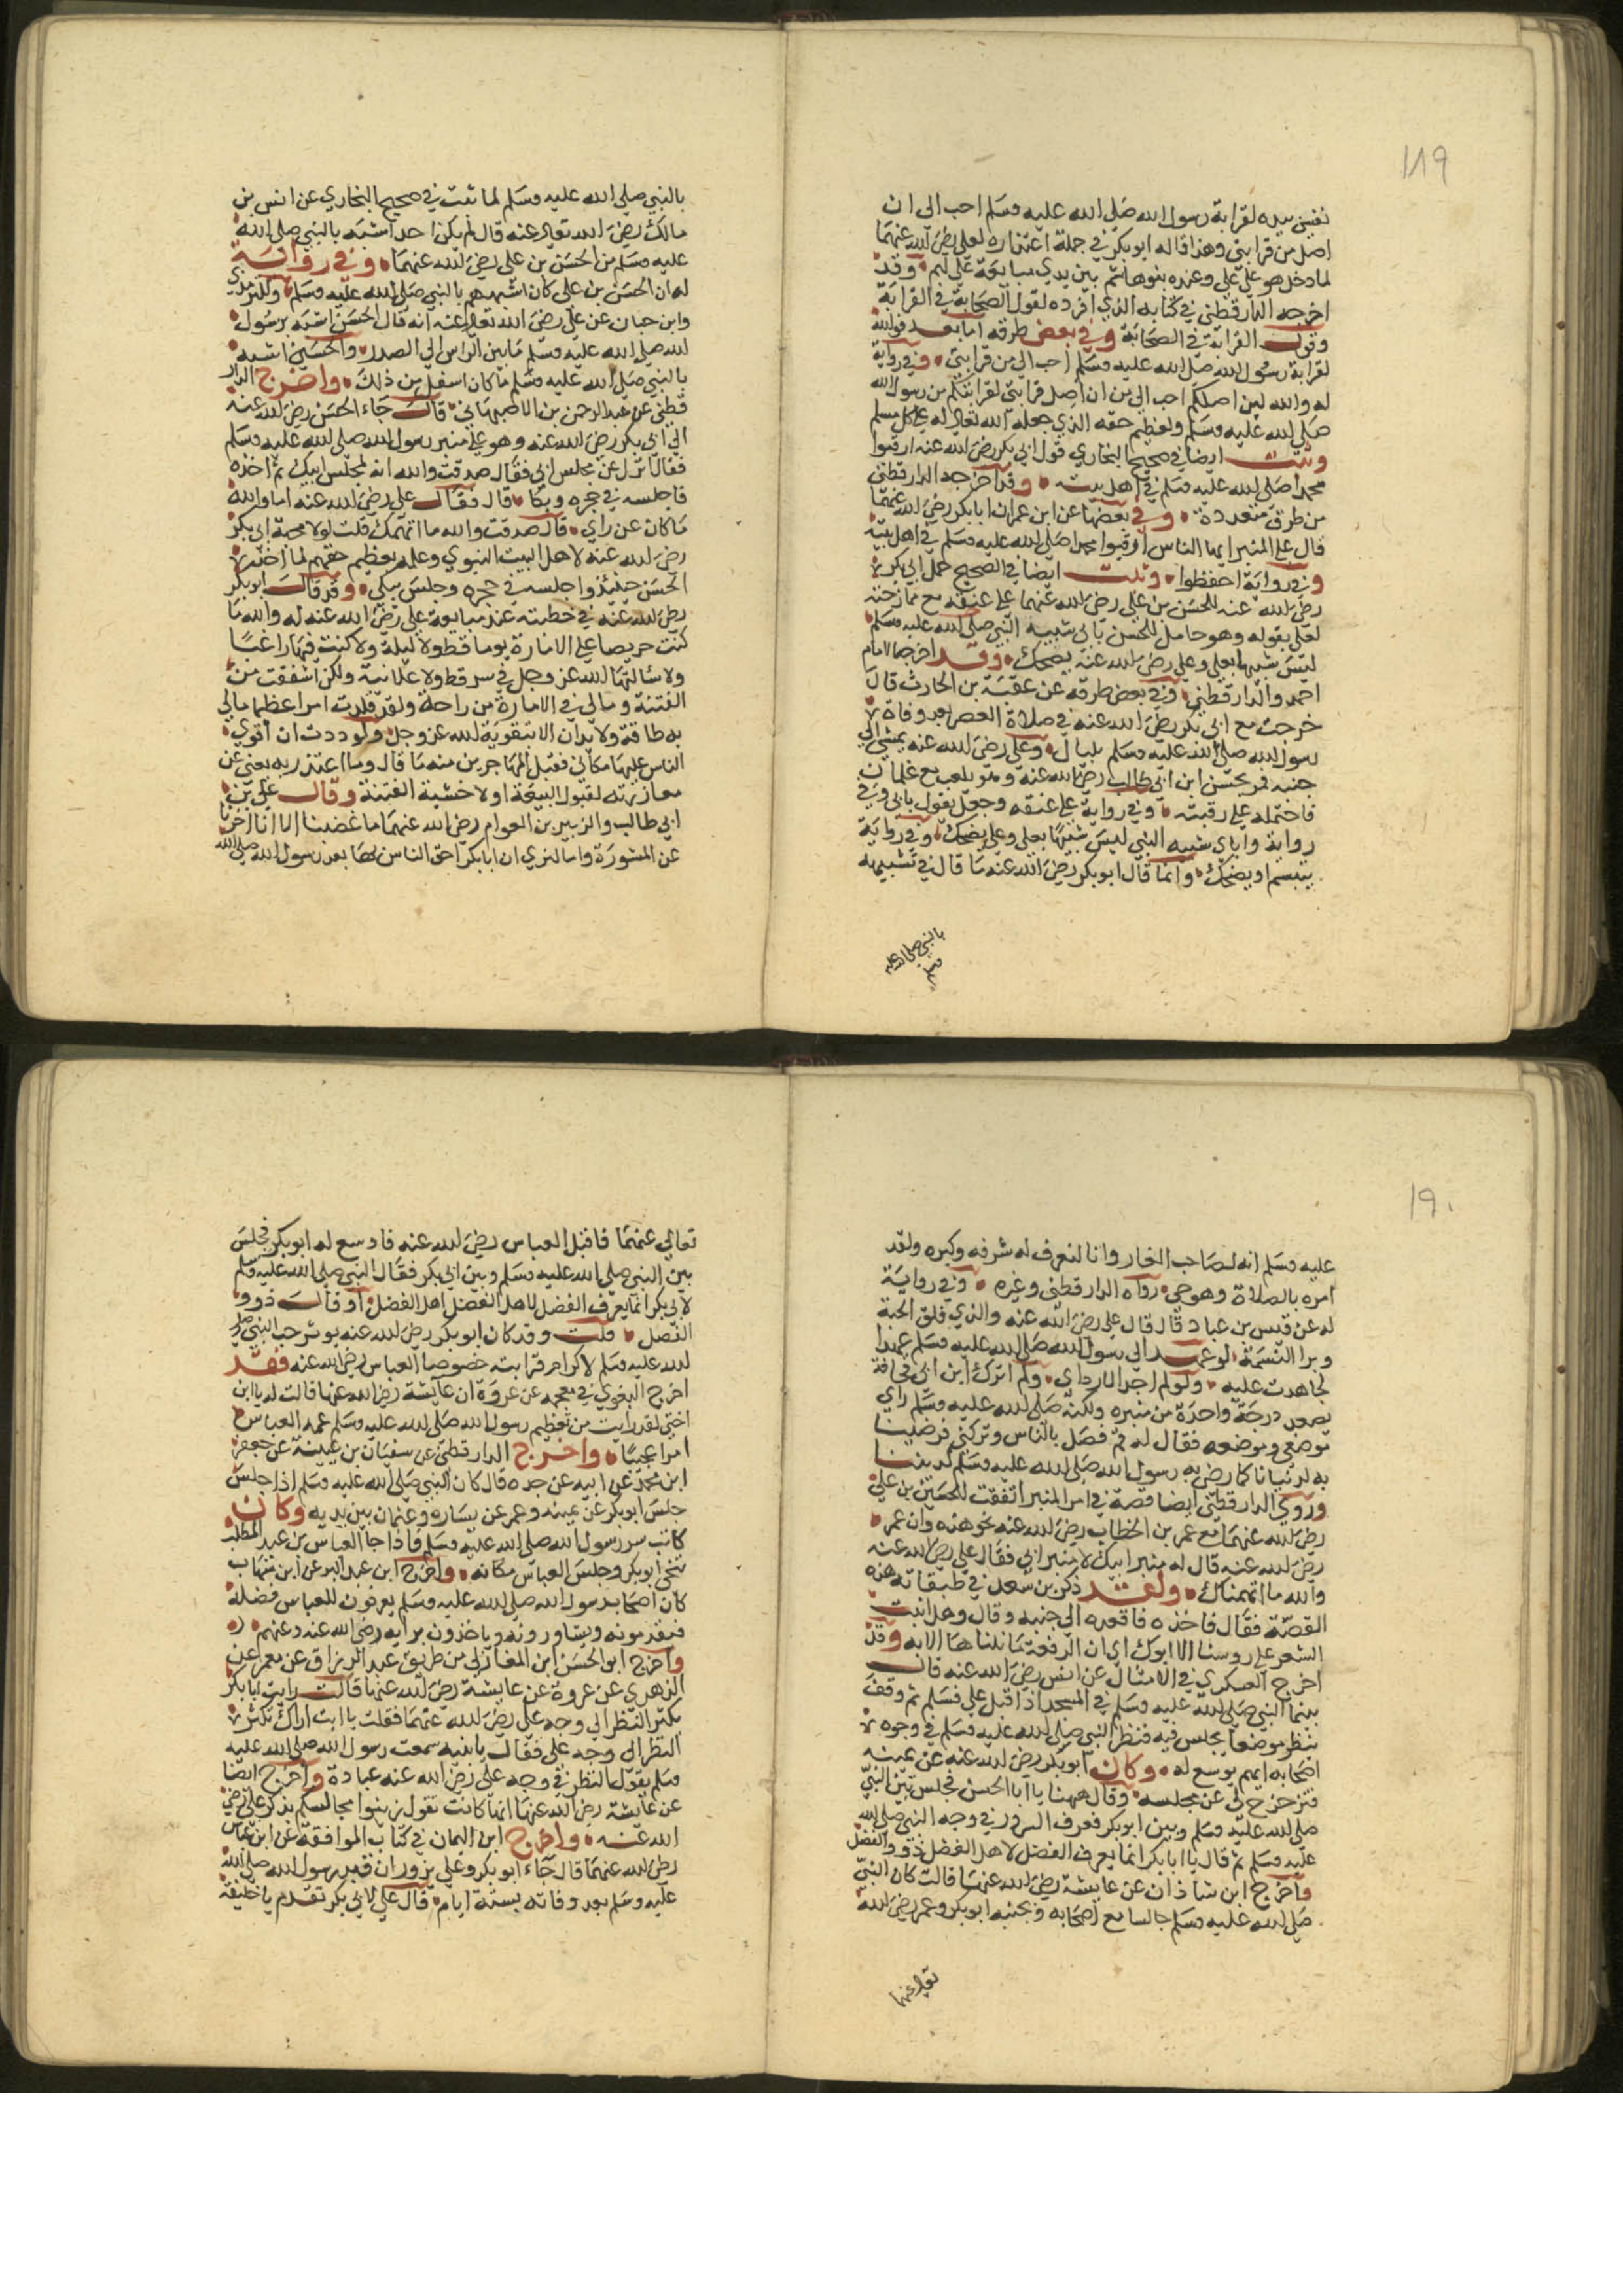 ١٨٩
نفسي بيده لقرابة رسول الله صلى الله عليه وسلم احب الى ان
اصل من قرابتي وهذا قاله ابو بكر في جملة اعتذاره لعلي رضي الله عنهما
لما دخل هو على علي وعنده بنو هاشم بين يدي مبايعة علي لهم وقد
اخرجه الدارقطني في كتابه الذي افرده لقول الصحابة في القرابة
وقول القرابة في الصحابة وفي بعض طرقه اما بعد فوالله
لقرابة رسول الله صلى الله عليه وسلم احب الي من قرابتي وفي رواية
له والله لين اصلكم احب الي من ان اصل قرابتي لقرابتكم من رسول الله
صلى الله عليه وسلم ولعظيم حقه الذي جعله الله تعالى له على كل مسلم
وثبت ايضا في صحيح البخاري قول ابي بكر رضي الله عنه ارقبوا
محمدا صلى الله عليه وسلم في اهل بيته وقد اخرجه الدارقطني
من طرق متعددة وفي بعضها عن ابن عمر ان ابا بكر رضي الله عنهما
قال على المنبر ايها الناس ارقبوا محمدا صلى الله عليه وسلم في اهل بيته
وفي رواية احفظوا وثبت ايضا في الصحيح حمل ابي بكر
رضي الله عنه للحسن بن علي رضي الله عنهما على عنقه مع ممازحته
لعلي بقوله وهو حامل للحسن بابي شبيه النبي صلى الله عليه وسلم
ليس شبيها بعلي وعلي رضي الله عنه يضحك وقد اخرجه الامام
احمد والدارقطني وفي بعض طرقه عن عقبة بن الحارث قال
خرجت مع ابي بكر رضي الله عنه في صلاة العصر بعد وفاة
رسول الله صلى الله عليه وسلم بليال وعلي رضي الله عنه يمشي الي
جنبه فمر بحسن ابن ابي طالب رضي الله عنه وهو يلعب مع غلمان
فاحتمله على رقبته وفي رواية على عنقه وجعل يقول بابي وفي
رواية وابابي شبيه النبي ليس شبيها بعلي وعلي يضحك وفي رواية
يتبسم او يضحك وانما قال ابو بكر رضي الله عنه ما قال في تشبيهه
بالنبي صلى الله عليه
وسلم
بالنبي صلى الله عليه وسلم لما ثبت في صحيح البخاري عن انس بن
مالك رضي الله تعالى عنه قال لم يكن احد اشبه بالنبي صلى الله
عليه وسلم من الحسن بن علي رضي الله عنهما وفي رواية
له ان الحسن بن علي كان اشبههم بالنبي صلى الله عليه وسلم وللترمذي
وابن حبان عن علي رضي الله تعالى عنه انه قال الحسن اشبه برسول
الله صلى الله عليه وسلم ما بين الراس الي الصدر والحسين اشبه
بالنبي صلى الله عليه وسلم ما كان اسفل من ذلك واخرج الدار
قطني عن عبد الرحمن بن الاصبهاني قال جاء الحسن رضي الله عنه
الي ابي بكر رضي الله عنه وهو على منبر رسول الله صلى الله عليه وسلم
فقال انزل عن مجلس ابي فقال صدقت والله انه لمجلس ابيك ثم اخذه
فاجلسه في حجره وبكا قال فقال علي رضي الله عنه اما والله
ما كان عن راي قال صدقت والله ما اتهمك قلت لولا محبة ابي بكر
رضي الله عنه لاهل البيت النبوي وعلمه بعظيم حقهم لما اخذ
الحسن حينيذ واجلسه في حجره وجلس يبكي وقد قال ابو بكر
رضي الله عنه في خطبته عند مبايعة علي رضي الله عنه له والله ما
كنت حريصا على الامارة يوما قط ولا ليلة ولا كنت فيها راغبا
ولا سالتها الله عز وجل في سر قط ولا علانية ولكن اشفقت من
الفتنة ومالي في الامارة من راحة ولقد قلدت امرا عظيما مالي
به طاقة ولا يدان الا بتقوية الله عز وجل ولوددت ان اقوي
الناس عليها مكاني فقبل المهاجرين منه ما قال وما اعتذر به يعني عن
معاذيرته لقبول البيعة اولا خشية الفتنة وقال علي بن
ابي طالب والزبير بن العوام رضي الله عنهما ما غضبنا الا انا اخرنا
عن المشورة وانا لنري ان ابا بكر احق الناس بها بعد رسول الله صلى الله
١٩٠
عليه وسلم انه لصاحب الغار وانا لنعرف له شرفه وكبره ولقد
امره بالصلاة وهو حي رواه الدارقطني وغيره وفي رواية
له عن قيس بن عباد قال قال علي رضي الله عنه والذي فلق الحبة
وبرا النسمة لو عهد الي رسول الله صلى الله عليه وسلم عهدا
لجاهدت عليه ولو لم اجد الا رداي ولم اترك ابن ابي قحافة
يصعد درجة واحدة من منبره ولكنه صلى الله عليه وسلم راي
موضعي وموضعه فقال له قم فصل بالناس وتركني فرضينا
به لدنيانا كما رضي به رسول الله صلى الله عليه وسلم لديننا
وروي الدارقطني ايضا قصة في امر المنبر اتفقت للحسين بن علي
رضي الله عنهما مع عمر بن الخطاب رضي الله عنه نحو هذه وان عمر
رضي الله عنه قال له منبر ابيك لا منبر ابي فقال علي رضي الله عنه
والله ما اتهمناك ولقد ذكر بن سعد في طبقاته هذه
القصة فقال فاخذه فاقعده الي جنبه وقال وهل انبت
الشعر على روسنا الا ابوك اي ان الرفعة ما نلناها الا به وقد
اخرج العسكري في الامثال عن انس رضي الله عنه قال
بينما النبي صلى الله عليه وسلم في المسجد اذ اقبل علي فسلم ثم وقف
ينظر موضعا يجلس فيه فنظر النبي صلى الله عليه وسلم في وجوه
اصحابه ايهم يوسع له وكان ابو بكر رضي الله عنه عن يمينه
فتزحزح له عن مجلسه وقال ههنا يا ابا الحسن فجلس بين النبي
صلى الله عليه وسلم وبين ابو بكر فعرف السرور في وجه النبي صلى الله
عليه وسلم ثم قال يا ابا بكر انما يعرف الفضل لاهل الفضل ذوو الفضل
واخرج ابن شاذان عن عايشة رضي الله عنها قالت كان النبي
صلى الله عليه وسلم جالسا مع اصحابه وبجنبه ابو بكر وعمر رضي الله
تعالى عنهما
تعالي عنهما فاقبل العباس رضي الله عنه فاوسع له ابو بكر فجلس
بين النبي صلى الله عليه وسلم وبين ابي بكر فقال النبي صلى الله عليه وسلم
لابي بكر انما يعرف الفضل لاهل الفضل اهل الفضل او قال ذوو
الفضل قلت وقد كان ابو بكر رضي الله عنه يوثر حب النبي صلى
الله عليه وسلم لاكرام قرابته خصوصا العباس رضي الله عنه فقد
اخرج البغوي في معجمه عن عروة ان عايشة رضي الله عنها قالت له يا ابن
اختي لقد رايت من تعظيم رسول الله صلى الله عليه وسلم عمه العباس
امرا عجيبا واخرج الدارقطني عن سفيان بن عيينة عن جعفر
ابن محمد عن ابيه عن جده قال كان النبي صلى الله عليه وسلم اذا جلس
جلس ابو بكر عن يمينه وعمر عن يساره وعثمان بين يديه وكان
كاتب سر رسول الله صلى الله عليه وسلم فاذا جا العباس بن عبد المطلب
تنحى ابو بكر وجلس العباس مكانه واخرج ابن عبد البر عن ابن شهاب
كان اصحاب رسول الله صلى الله عليه وسلم يعرفون للعباس فضله
فيقدمونه ويشاورونه وياخذون برايه رضي الله عنه وعنهم
واخرج ابو الحسن ابن المغازلي من طريق عبد الرزاق عن معمر عن
الزهري عن عروة عن عايشة رضي الله عنها قالت رايت ابا بكر
يكثر النظر الي وجه علي رضي الله عنهما فقلت يا ابت اراك تكثر
النظر الى وجه علي فقال يا بنيه سمعت رسول الله صلى الله عليه
وسلم يقول النظر في وجه علي رضي الله عنه عبادة واخرج ايضا
عن عايشة رضي الله عنها انها كانت تقول زينوا مجالسكم بذكر علي رضي
الله عنه واخرج ابن اليمان في كتاب الموافقة عن ابن عباس
رضي الله عنهما قال جاء ابو بكر وعلي يزوران قبر رسول الله صلى الله
عليه وسلم بعد وفاته بستة ايام قال علي لابي بكر تقدم يا خليفة